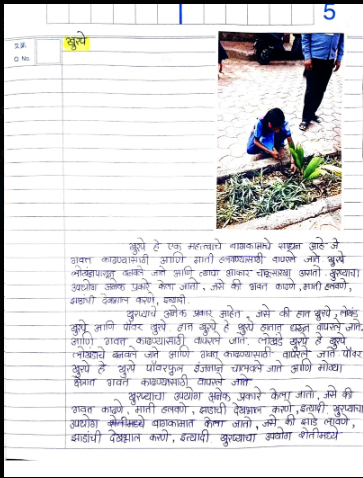 5
प्र.क्र.
Q. No.
खुरपे
खुरपे हे एक महत्वाचे बागकामाचे साधन आहे जे
गवत काढण्यासाठी आणि माती हलवण्यासाठी वापरले जाते खुरपे
लोखंडापासून बनवले जाते आणि त्याचा आकार चाकूसारखा असतो खुरप्याचा
उपयोग अनेक प्रकारे केला जातो, जसे की गवत काढणे, माती हलवणे,
झाडांची देखभाल करणे, इत्यादी.
खुरप्याचे अनेक प्रकार आहेत, जसे की हात खुरपे, लोखंडे
खुरपे आणि पॉवर खुरपे हात खुरपे हे खुरपे हातात धरून वापरले जाते
आणि गवत काढण्यासाठी वापरले जाते. लोखंडे खुरपे हे खुरपे
लोखंडाचे बनवले जाते आणि गवत काढण्यासाठी वापरले जाते पॉवर
खुरपे हे खुरपे पॉवरफुल इंजनाने चालवले जाते आणि मोठ्या
क्षेत्रात गवत काढण्यासाठी वापरले जाते
खुरप्याचा उपयोग अनेक प्रकारे केला जातो, जसे की
गवत काढणे, माती हलवणे, झाडांची देखभाल करणे, इत्यादी खुरप्याचा
उपयोग बागकामात केला जातो, जसे की झाडे लावणे,
झाडांची देखभाल करणे, इत्यादी खुरप्याचा उपयोग शेतीमध्ये